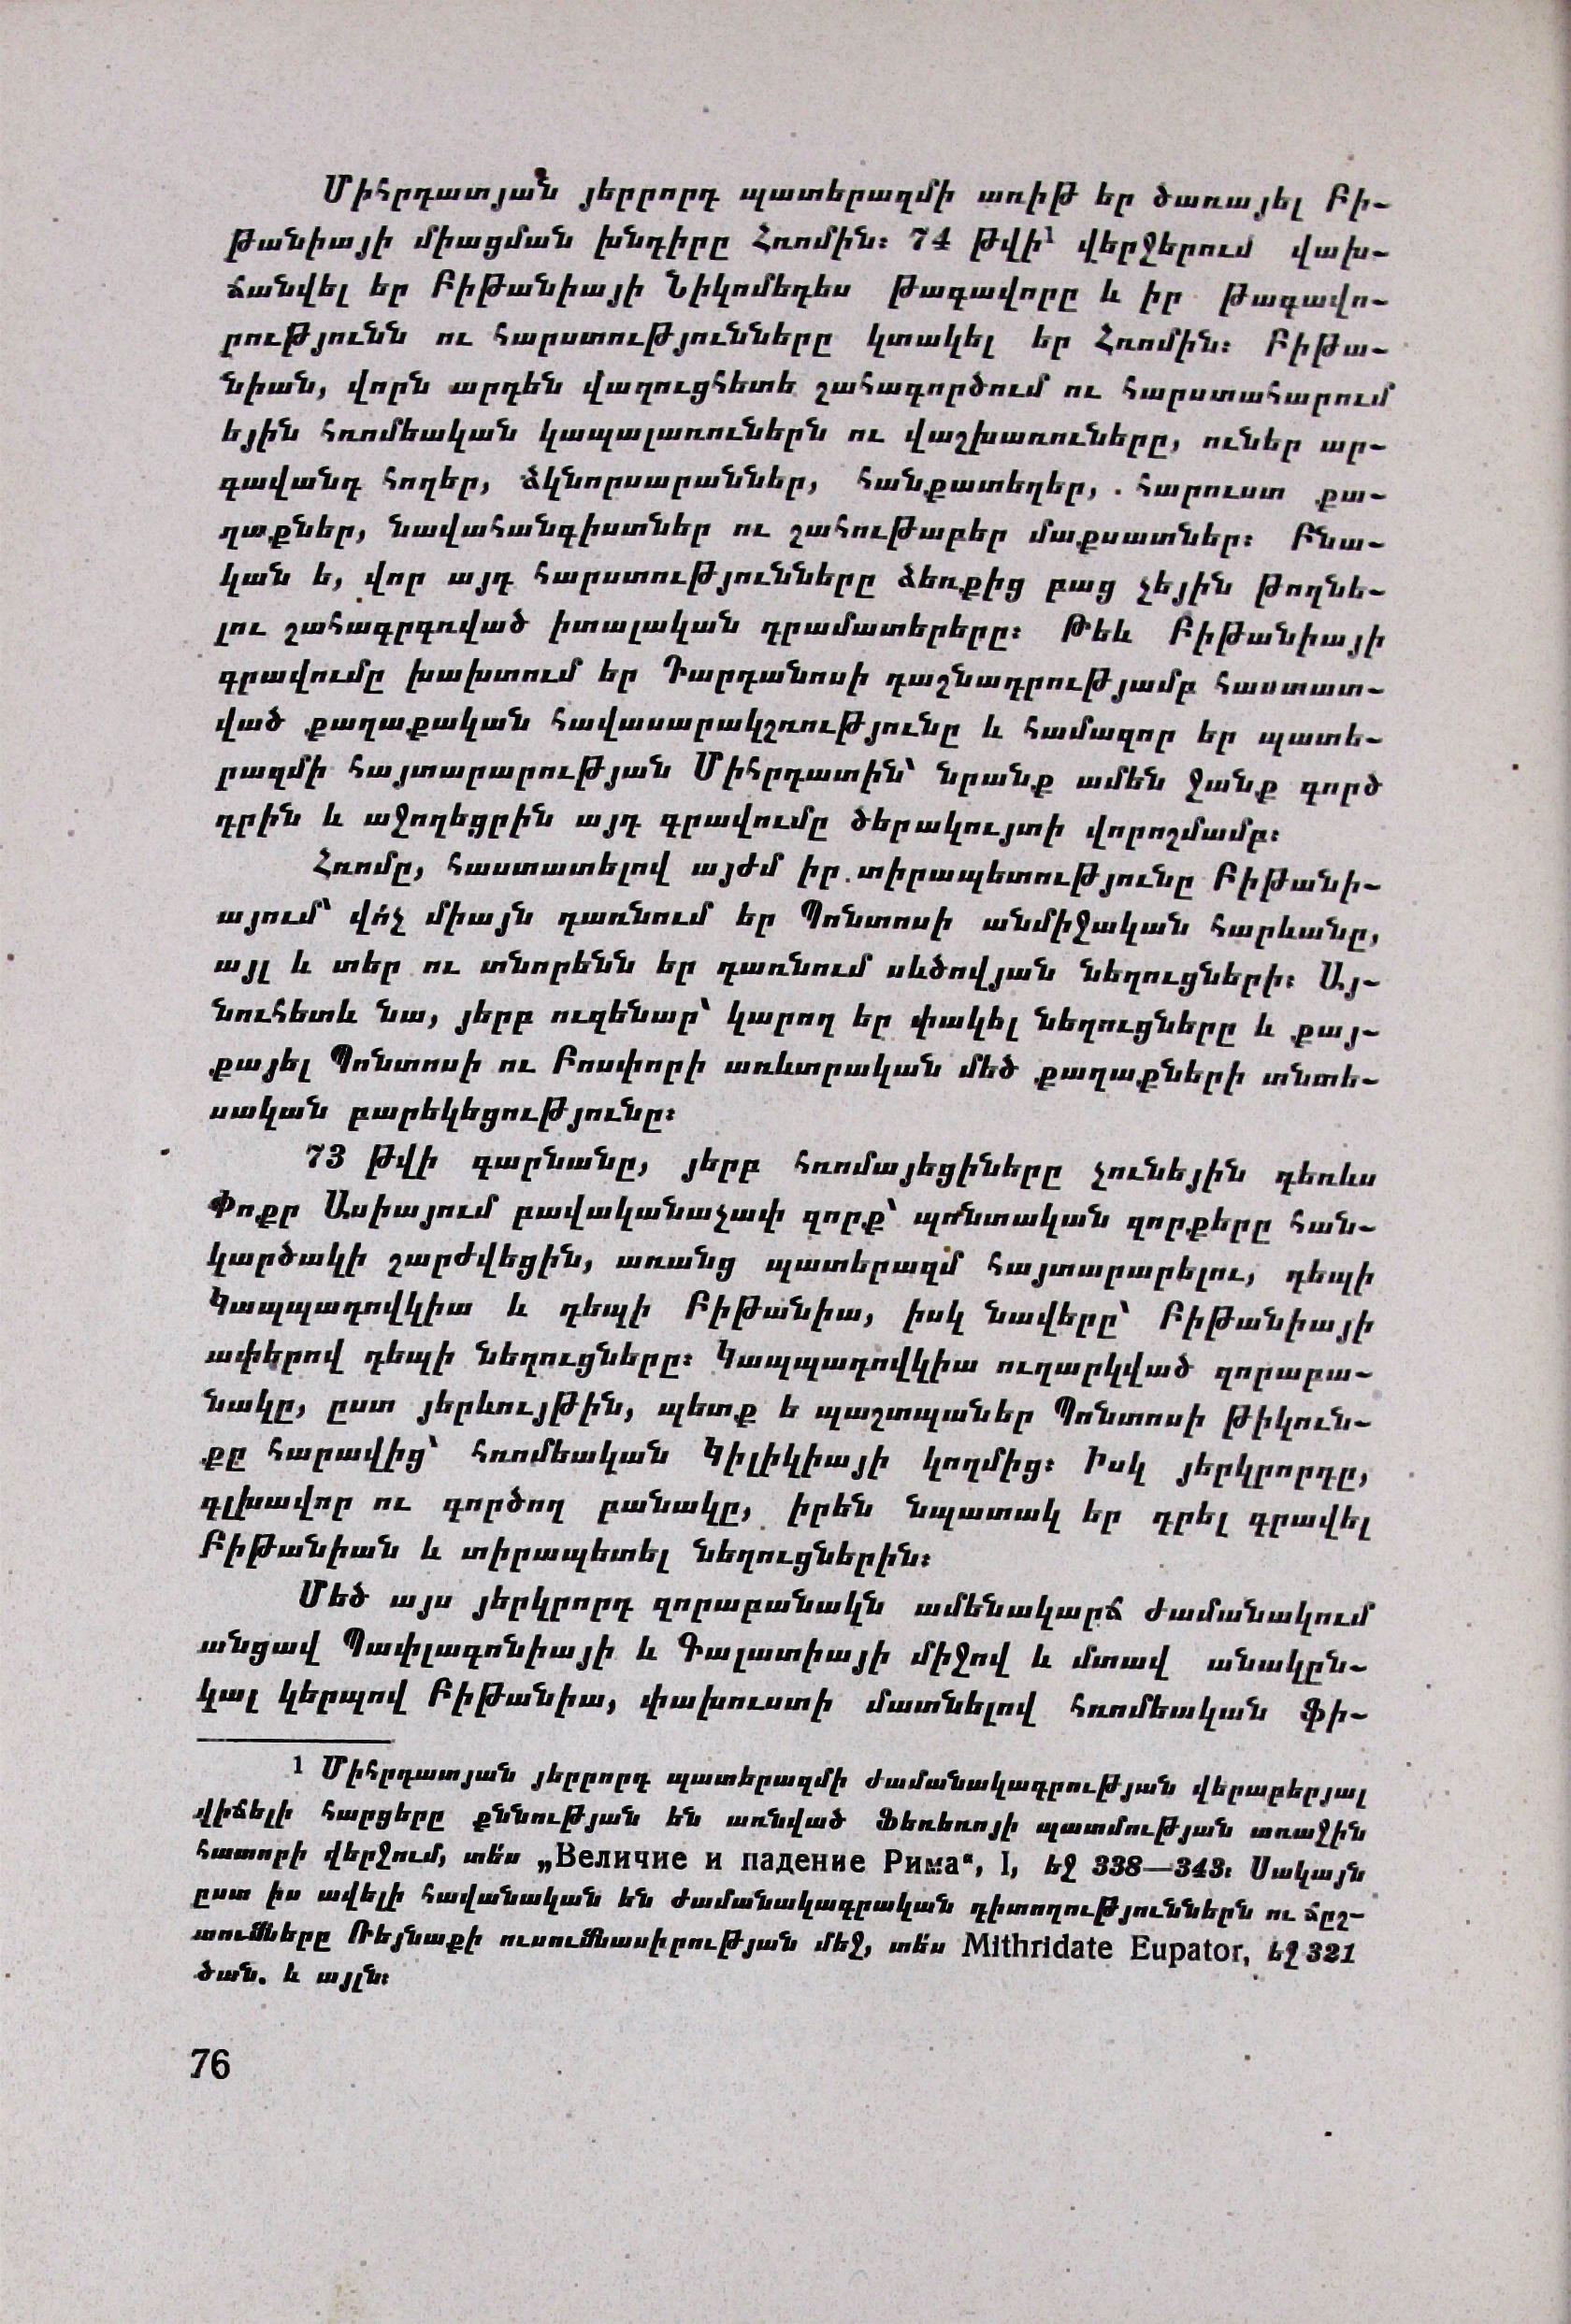 Միհրդատյան յերրորդ պատերազմի առիթ եր ծառայել Բի-
թանիայի միացման խնդիրը Հռոմին։ 74 թվի¹ վերջերում վախ-
ճանվել եր Բիթանիայի Նիկոմեդես թագավորը և իր թագավո-
րությունն ու հարստությունները կտակել եր Հռոմին։ Բիթա-
նիան, վորն արդեն վաղուցհետե շահագործում ու հարստահարում
եյին հռոմեական կապալառուներն ու վաշխառուները, ուներ ար-
գավանդ հողեր, ձկնորսարաններ, հանքատեղեր, հարուստ քա-
ղաքներ, նավահանգիստներ ու շահութաբեր մաքսատներ։ Բնա-
կան ե, վոր այդ հարստությունները ձեռքից բաց չեյին թողնե-
լու շահագրգռված իտալական դրամատերերը։ Թեև Բիթանիայի
գրավումը խախտում եր Դարդանոսի դաշնադրությամբ հաստատ-
ված քաղաքական հավասարակշռությունը և համազոր եր պատե-
րազմի հայտարարության Միհրդատին՝ նրանք ամեն ջանք գործ
դրին և աջողեցրին այդ գրավումը ծերակույտի վորոշմամբ։
Հռոմը, հաստատելով այժմ իր տիրապետությունը Բիթանի-
այում՝ վո՛չ միայն դառնում եր Պոնտոսի անմիջական հարևանը,
այլ և տեր ու տնորենն եր դառնում սևծովյան նեղուցների։ Այ-
նուհետև նա, յերբ ուզենար՝ կարող եր փակել նեղուցները և քայ-
քայել Պոնտոսի ու Բոսփորի առևտրական մեծ քաղաքների տնտե-
սական բարեկեցությունը։
73 թվի գարնանը, յերբ հռոմայեցիները չունեյին դեռևս
Փոքր Ասիայում բավականաչափ զորք՝ պոնտական զորքերը հան-
կարծակի շարժվեցին, առանց պատերազմ հայտարարելու, դեպի
Կապպադովկիա և դեպի Բիթանիա, իսկ նավերը՝ Բիթանիայի
ափերով դեպի նեղուցները։ Կապպադովկիա ուղարկված զորաբա-
նակը, ըստ յերևույթին, պետք ե պաշտպաներ Պոնտոսի թիկուն-
քը հարավից՝ հռոմեական Կիլիկիայի կողմից։ Իսկ յերկրորդը,
գլխավոր ու գործող բանակը, իրեն նպատակ եր դրել գրավել
Բիթանիան և տիրապետել նեղուցներին։
Մեծ այս յերկրորդ զորաբանակն ամենակարճ ժամանակում
անցավ Պափլագոնիայի և Գալատիայի միջով և մտավ անակըն-
կալ կերպով Բիթանիա, փախուստի մատնելով հռոմեական ֆի-
¹ Միհրդատյան յերրորդ պատերազմի ժամանակագրության վերաբերյալ
վիճելի հարցերը քննության են առնված Ֆեռեռոյի պատմության առաջին
հատորի վերջում, տե՛ս „Величие и падение Рима“, I, եջ 338—343։ Սակայն
ըստ իս ավելի հավանական են ժամանակագրական դիտողություններն ու ճըշ-
տումները Ռեյնաքի ուսումնասիրության մեջ, տե՛ս Mithridate Eupator, եջ 321
ծան. և այլն։
76